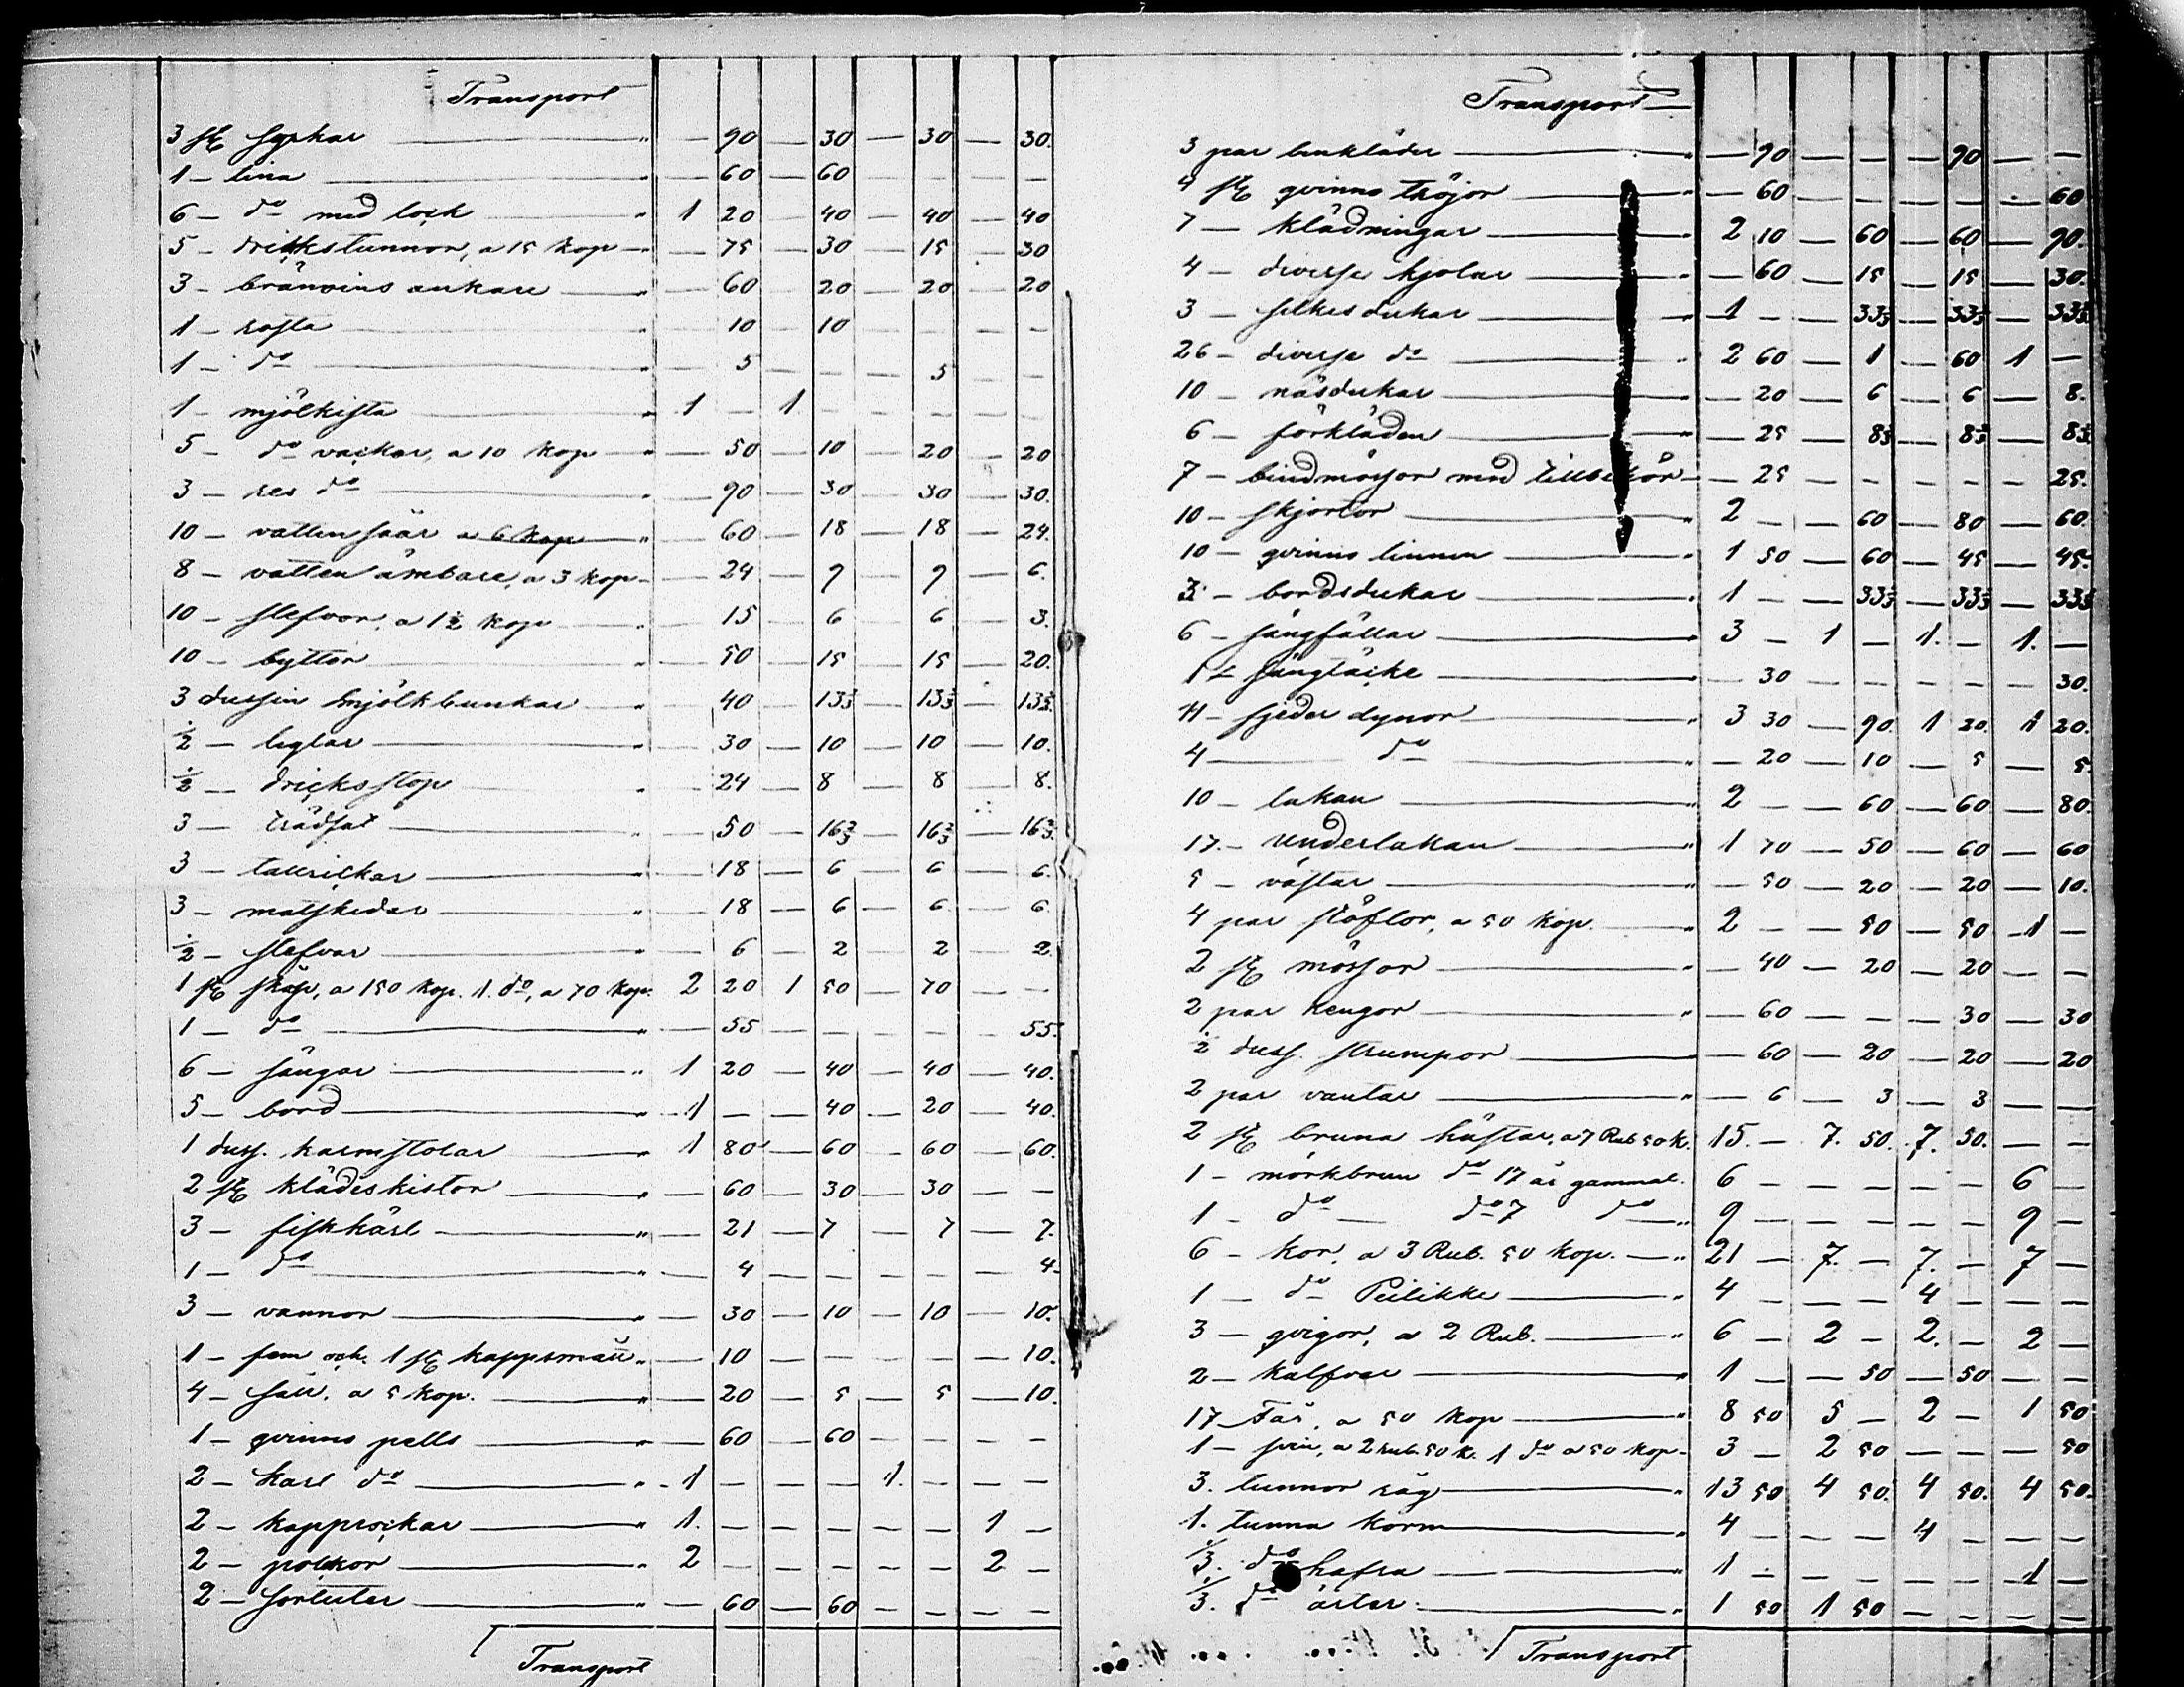 Transport
3 st syrkar " — 90 — 30 — 30 — 30.
1 — tina " — 60 — 60 — — — —
6 — do med lock " 1 20 — 40 — 40 — 40
5 — drikkstunnor, a 15 kop — — 75 — 30 — 15 — 30
3 — bränvins ankare " — 60 — 20 — 20 — 20
1 — " — 10 — 10 — — — —
1 — do " — 5 — — — 5 — —
1 — mjölkista " 1 — 1 — — — — —
5 — do vackor, a 10 kop " — 50 — 10 — 20 — 20
3 — res do " — 90 — 30 — 30 — 30.
10 — vatten såar a 6 kop " — 60 — 18 — 18 — 24.
8 — vatten ämbare, a 3 kop — — 24 — 9 — 9 — 6.
10 — slefvor, a 1½ kop " — 15 — 6 — 6 — 3.
10 — byttor " — 50 — 15 — 15 — 20.
3 dussin mjölkbunkar " — 40 — 13⅓ — 13⅓ — 13⅓.
½ — liglar " — 30 — 10 — 10 — 10.
½ — dricksstop " — 24 — 8 — 8 — 8.
3 — trädfat " — 50 — 16⅔ — 16⅔ — 16⅔.
3 — tallrickar " — 18 — 6 — 6 — 6.
3 — matskedar " — 18 — 6 — 6 — 6
½ — slefvar " — 6 — 2 — 2 — 2
1 st skåp, a 150 kop. 1. do, a 70 kop. 2 20 1 50 — 70 — —
1 — do " — 55 — — — — — 55.
6 — sängar " 1 20 — 40 — 40 — 40.
5 — bord " 1 — — 40 — 20 — 40.
1 duss. karmstolar " 1 80 — 60 — 60 — 60.
2 st klädeskistor " — 60 — 30 — 30 — —
3 — fiskkärl " — 21 — 7 — 7 — 7.
1 — do " — 4 — — — — — 4.
3 — vannor " — 30 — 10 — 10 — 10.
1 — fam och 1 st kappsmått " — 10 — — — — — 10.
4 — såll, a 5 kop. " — 20 — 5 — 5 — 10.
1 — qvinns pells " — 60 — 60 — — — —
2 — karl do " 1 — — — 1. — — —
2 — kapprockar " 1. — — — — — 1 —
2 — polkor " 2 — — — — — 2 —
2 — sortuter " — 60 — 60 — — — —
Transport
Transport
3 par benkläder " — 90 — — — 90 — —
4 st qvinns tröjor " — 60 — — — — — 60
7 — klädningar 2 10 — 60 — 60 — 90.
4 — diverse kjolar " — 60 — 15 — 15 — 30.
3 — silkes dukar " 1 — — 33⅓ — 33⅓ — 33⅓
26 — diverse do " 2 60 — 1 — 60 1 —
10 — näsdukar — 20 — 6 — 6 — 8.
6 — förkläden " — 25 — 8⅓ — 8⅓ — 8⅓
7 — bindmössor med tillbehör — — 25 — — — — — 25.
10 — skjortor " 2 — — 60 — 80 — 60.
10 — qvinns linnen " 1 50 — 60 — 45 — 45.
3 — bordsdukar " 1 — — 33⅓ — 33⅓ — 33⅓
6 — sängfällar " 3 — 1 — 1. — 1. —
1 — sängtäcke " — 30 — — — — — 30.
11 — fjeder dynor " 3 30 — 90. 1 20. 1 20.
4 — do " — 20 — 10 — 5 — 5.
10 — lakan " 2 — — 60 — 60 — 80.
17. — underlakan " 1 70 — 50 — 60 — 60
5 — västar " — 50 — 20 — 20 — 10.
4 par stöflor, a 50 kop. " 2 — — 50 — 50 — 1 —
2 st mössor " — 40 — 20 — 20 — —
2 par kengor " — 60 — — — 30 — 30
½ duss. strumpor — 60 — 20 — 20 — 20
2 par vantar " — 6 — 3 — 3 — —
2 st bruna hästar, a 7 Rub 50 k. 15. — 7. 50. 7. 50. — —
1 — mörkbrun do 17 år gammal. 6 — — — — — 6 —
1 — do — do 7 do " 9 — — — — — 9 —
6 — kor, a 3 Rub. 50 kop. " 21 — 7. — 7. — 7 —
1 — do Piilikke " 4 — — — 4 — — —
3 — qvigor, a 2 Rub. " 6 — 2 — 2. — 2 —
2 — kalfvar " 1 — — 50 — 50 — —
17 — Får, a 50 kop " 8 50 5 — 2 — 1 50
1 — svin, a 2 rub. 50 k. 1 do a 50 kop — 3 — 2 50 — — — 50
3. tunnor råg " 13 50 4 50. 4 50. 4 50.
1. tunna korn " 4 — — — 4 — — —
⅓. do hafra " 1 — — — — — 1 —
⅓. do ärter " 1 50 1 50 — — — —
Transport